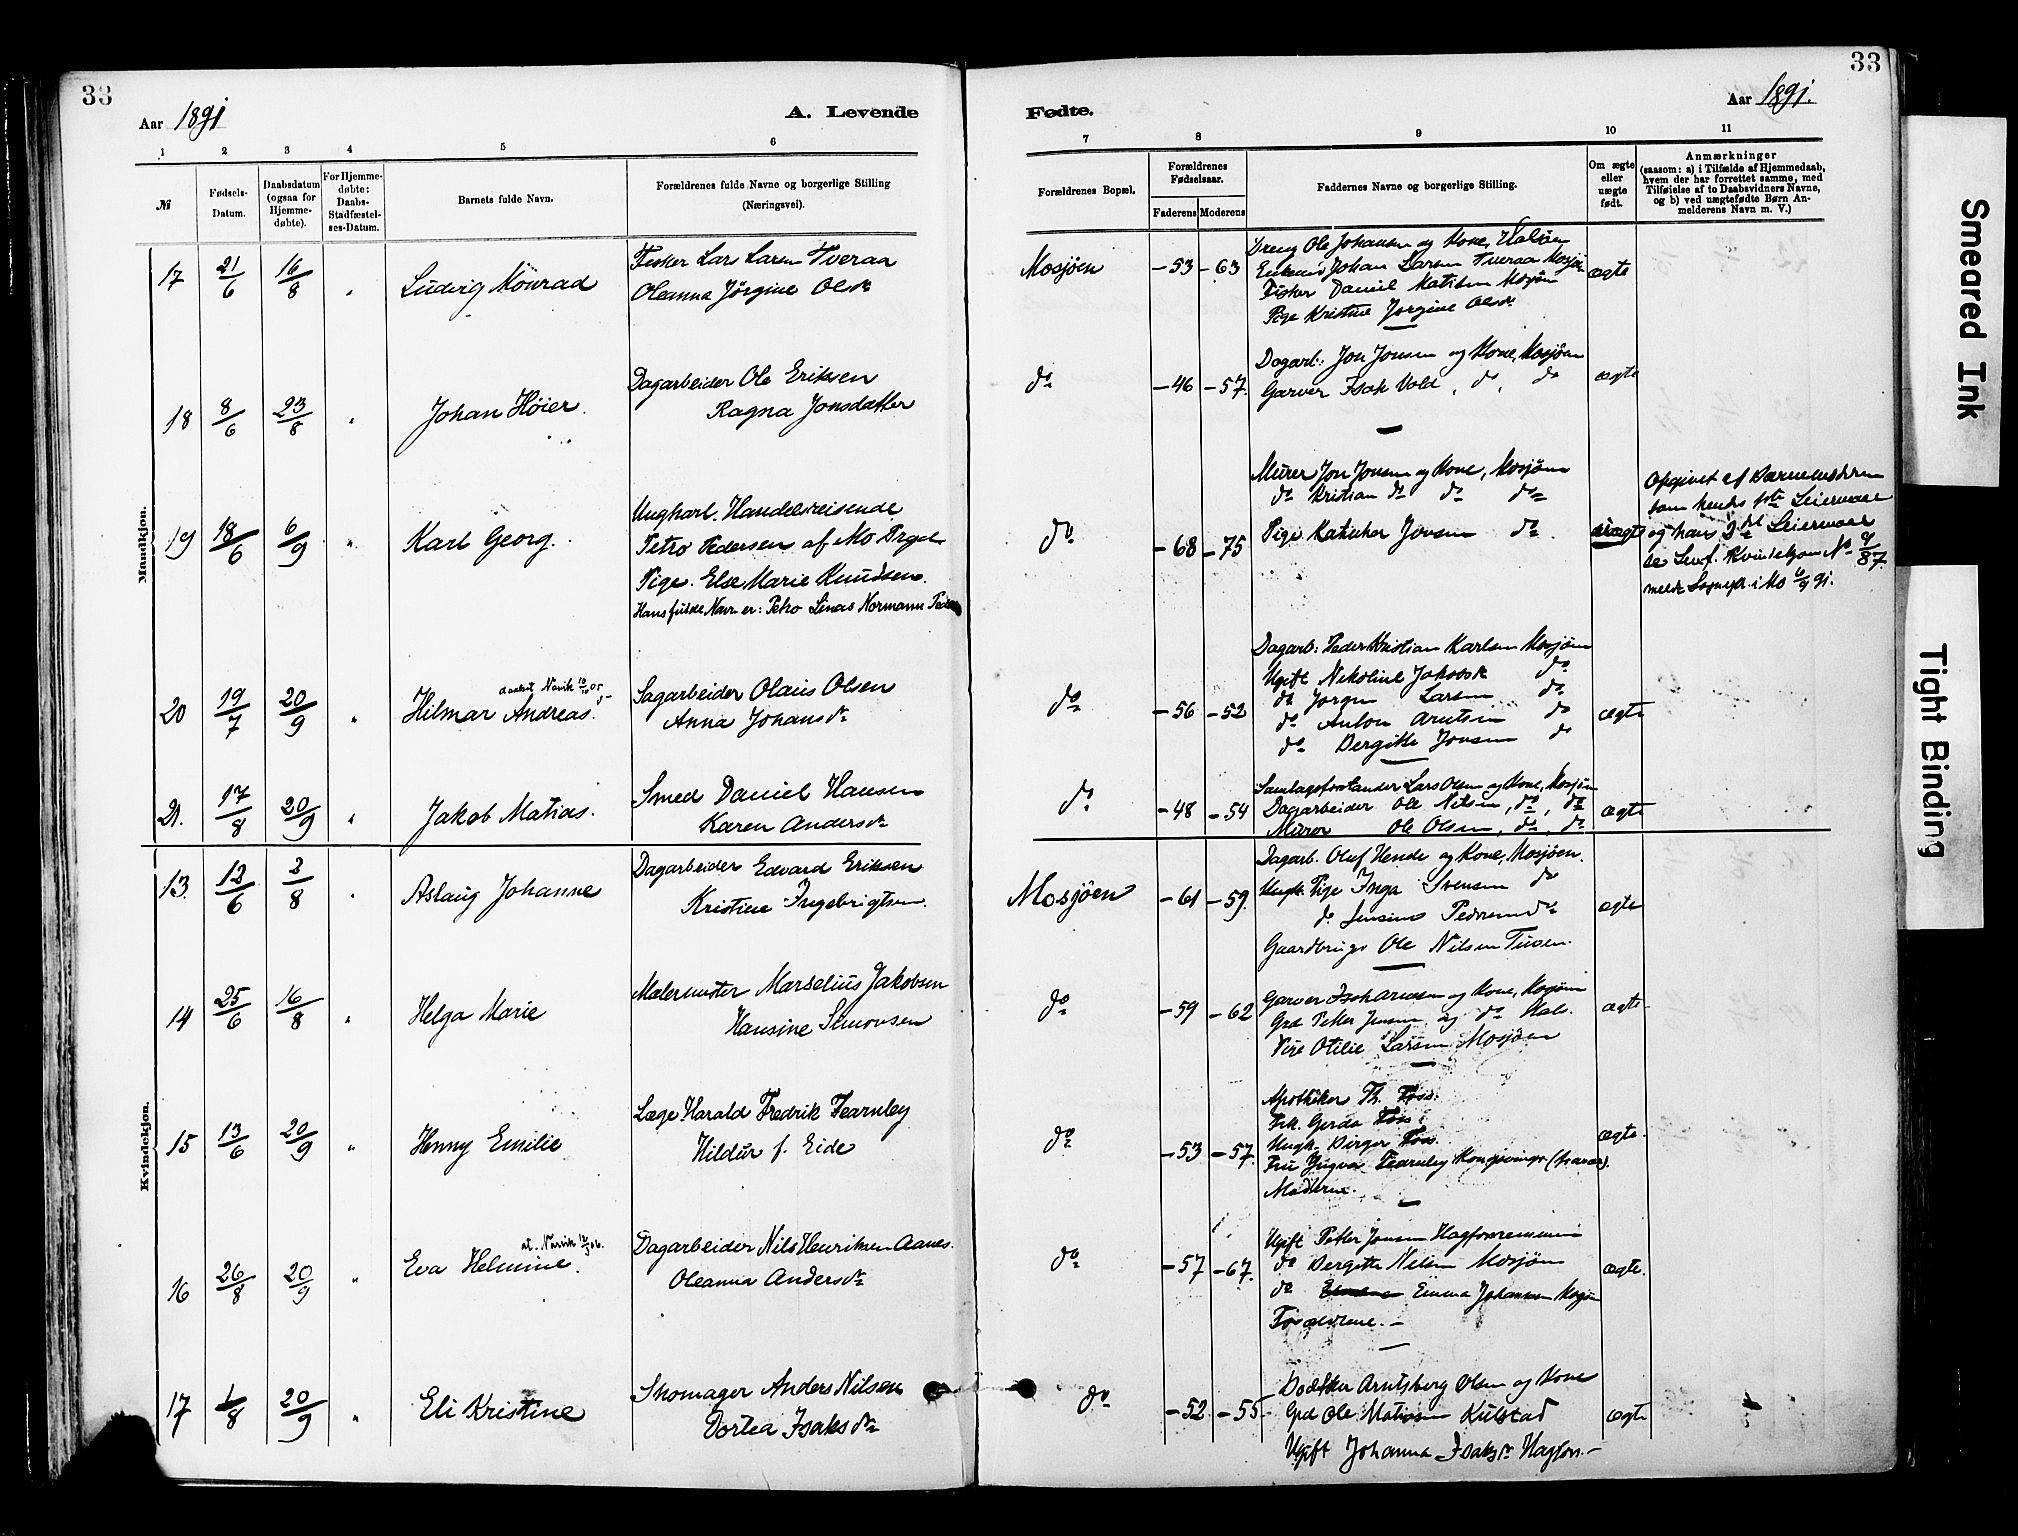 33
Aar 1891
A. Levende
1 2 3 4 5 6
№
Fødsels-
Datum.
Daabsdatum
(ogsaa for
Hjemme-
døbte).
For Hjemme-
døbte:
Daabs-
Stadfæstel-
ses-Datum.
Barnets fulde Navn.
Forældrenes fulde Navne og borgerlige Stilling
(Næringsvei).
Mandkjøn.
17 21/6 16/8 " Ludvig Monrad
Fisker Lars Larsen Tveraa
Oleanna Jørgine Olsdr
18 8/6 23/8 " Johan Høier.
Dagarbeider Ole Eriksen
Ragna Jonsdatter
19 18/6 6/9 " Karl Georg.
Ungkarl. Handelsreisende
Petro Pedersen af Mo
Pige. Else Marie Knudsen.
Hans fulde Navn er: Petro Linas Normann
20 19/7 20/9 " Hilmar Andreas.
Narvik
Sagarbeider Olaus Olsen
Anna Johansdr
21. 17/8 20/9 " Jakob Matias.
Smed Daniel Hansen
Karen Andersdr
Kvindekjøn.
13. 12/6 2/8 " Aslaug Johanne
Dagarbeider Edvard Eriksen
Kristine Ingebrigtsen.
14 25/6 16/8 " Helga Marie
Malermester Marselius Jakobsen
Hansine Simonsen
15 13/6 20/9 " Henny Emilie
Læge Harald Fredrik Fearnley
Hildur f. Eide
16 26/8 20/9 " Eva Helmine.
Narvik
Dagarbeider Nils Henriksen Aanes.
Oleanna Andersdr
17 1/8 20/9 " Eli Kristine
Skomager Anders Nilsen
Dortea Isaksdr
33
Aar 1891.
Fødte.
7 8 9 10 11
Forældrenes Bopæl.
Forældrenes
Fødselsaar.
Faderens Moderens
Faddernes Navne og borgerlige Stilling.
Om ægte
eller
uægte
født.
Anmærkninger
(saasom: a) i Tilfælde af Hjemmedaab,
hvem der har forrettet samme, med
Tilføielse af to Daabsvidners Navne,
og b) ved uægtefødte Børn An-
melderens Navn m. V.)
Mosjøen -53 -63
Dreng Ole Johansen og Kone,
Johan Larsen Tveraa Mosjøn
Fisker Daniel Matisen Mosjøn
Pige Kristine Jorgine Olsdr
ægte
do -46 -57.
Dagarb. Jon Jonsen og Kone, Mosjøen
Garver Isak Vold, do, do
ægte
do -68 -75
Murer Jon Jonsen og Kone, Mosjøen
do Kristian do do do
Pige Jonsen do.
uægte
Opgivet af Barnemoderen
som hendes 1ste Leiermaal
og hans 2det Leiermaal
Kvindekjøn No 4/87.
meldt Sognepr. i Mo 6/9 91.
do -56 -52
Dagarb: Peder Kristian Karlsen Mosjøen
Ugift Nikoline Jakobsdr do
do Jørgen Larsen do
do Anton Arntsen do
do Bergitte Jonsen do
ægte
do -48 -54
Samlagsforstander Lars Olsen og Kone, Mosjøn
Dagarbeider Ole Nilsen, do, do
Murer Ole Olsen, do, do
ægte
Mosjøen -61 -59.
Dagarb. Oluf Hende og Kone, Mosjøen.
Pige Inga Svensen do
do Pedersen do
Gaardbruger Ole Nilsen Tusen.
ægte
do -59 -62
Garver og Kone, Mosjøen
Grd Petter Jensen og do Hals.
Pige Otilie Larsen Mosjøen
ægte
do -53 -57.
Apotheker Th. Foss.
Frk. Gerda Foss.
Ungk. Birger Foss.
Fru Yngva Fearnley Kongsvinger
Moderen.
ægte.
do -57 -67.
Ugift Petter Jonsen
do Bergitte Nilsen Mosjøen
do Emma Johansen Mosjøn
Forældrene.
ægte.
do -52. -55
Bødker Arntsberg Olsen og Kone
Grd Ole Matiasen Kulstad
Ugift Johanna Isaksdr Hagfors
ægte
Smeared Ink
Tight Binding